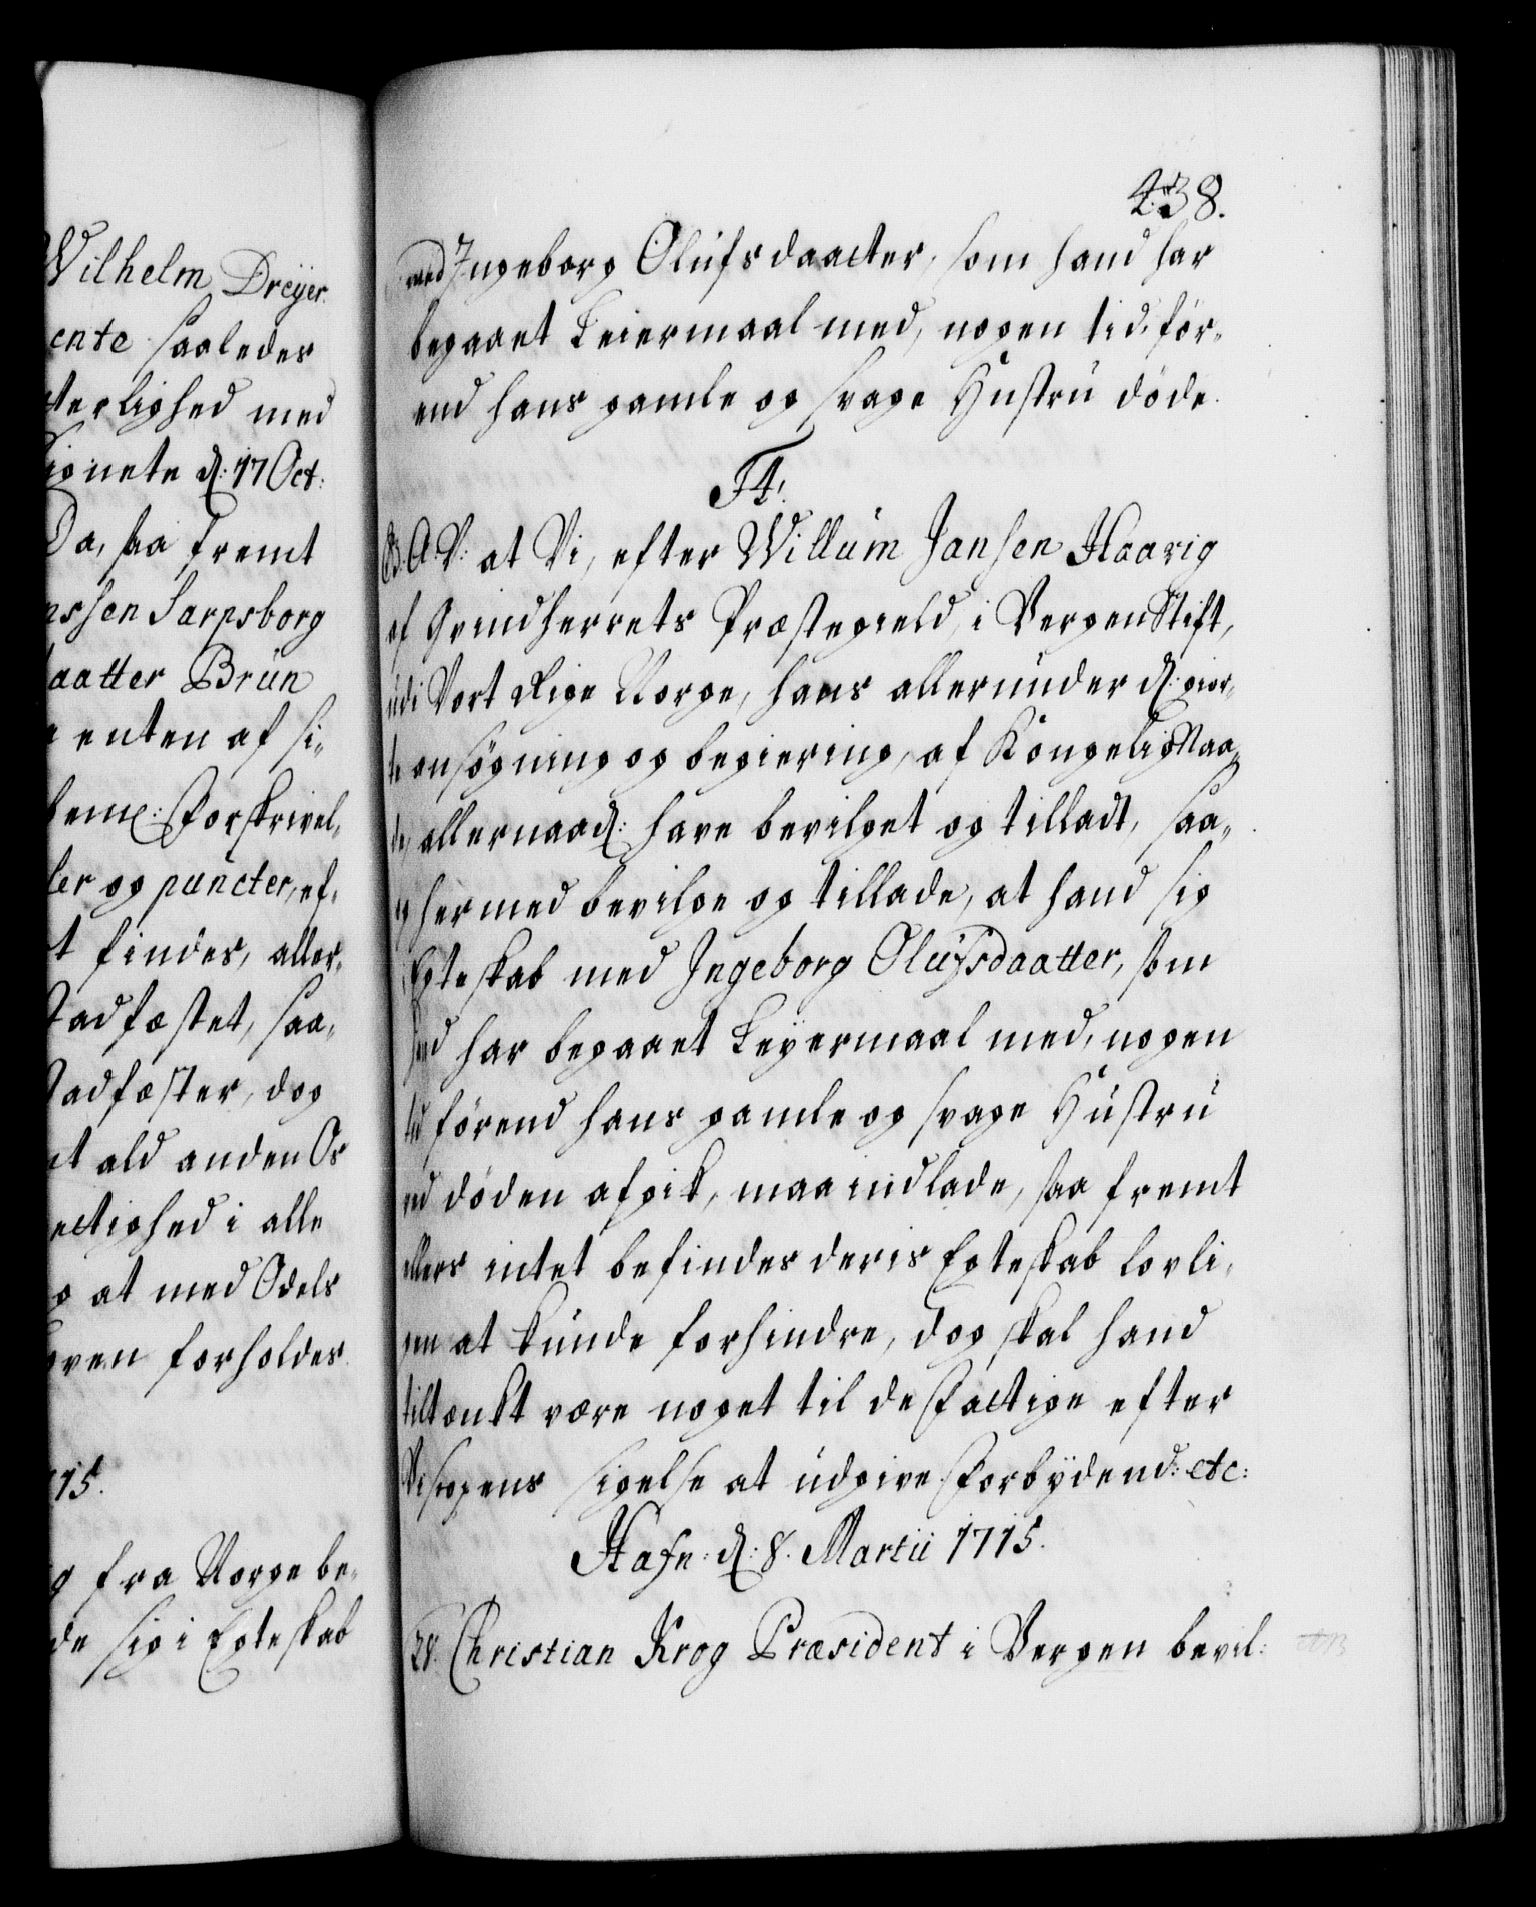 Wilhelm Dreÿer
ente saaledes
terlighed med
Signete d: 17 Oct:
Da, saa fremt
nsSen Sarpsborg
aatter Brün
enten af si-
lem: Forskrivel-
ler og puncter, ef-
t findes, aller-
Stadfæstet, saa-
Stadfæster, dog
t ald anden Os
ectighed i alle
g at med Odels
Loven forholdes.
715.
g fra Norge be-
de sig i Egteskab
438.
med Ingeborg Olüfsdaatter, som hand har
begaaet Leiermaal med, nogen tid, för-
end hans gamle og svage Hüstrü döde.
F4!
G. A. V: at Vi, efter Willüm Jansen Haarig
af Qvindherrets Præstegield, i Bergen Stift,
üdi Vort Rige Norge, hans alleründer d: gior-
te ansögning og begiering, af Kongelig Naa-
de, allernaad: have bevilget og tilladt, saa-
og hermed bevilge og tillade, at hand sig
i Egteskab med Ingeborg Olüfsdaatter, som
hand har begaaet Leÿermaal med, nogen
tid förend hans gamle og svage Hüstrü
ved döden afgik, maa indlade, saa fremt
ellers intet befindes deris Egteskab lovli-
gen at künde forhindre, dog skal hand
tiltænkt være noget til de Fattige efter
Biscopens sigelse at üdgive. Forbÿdend: etc:
Hafn: d: 8. Martii 1715.
28. Christian Krog Præsident i Bergen bevil: